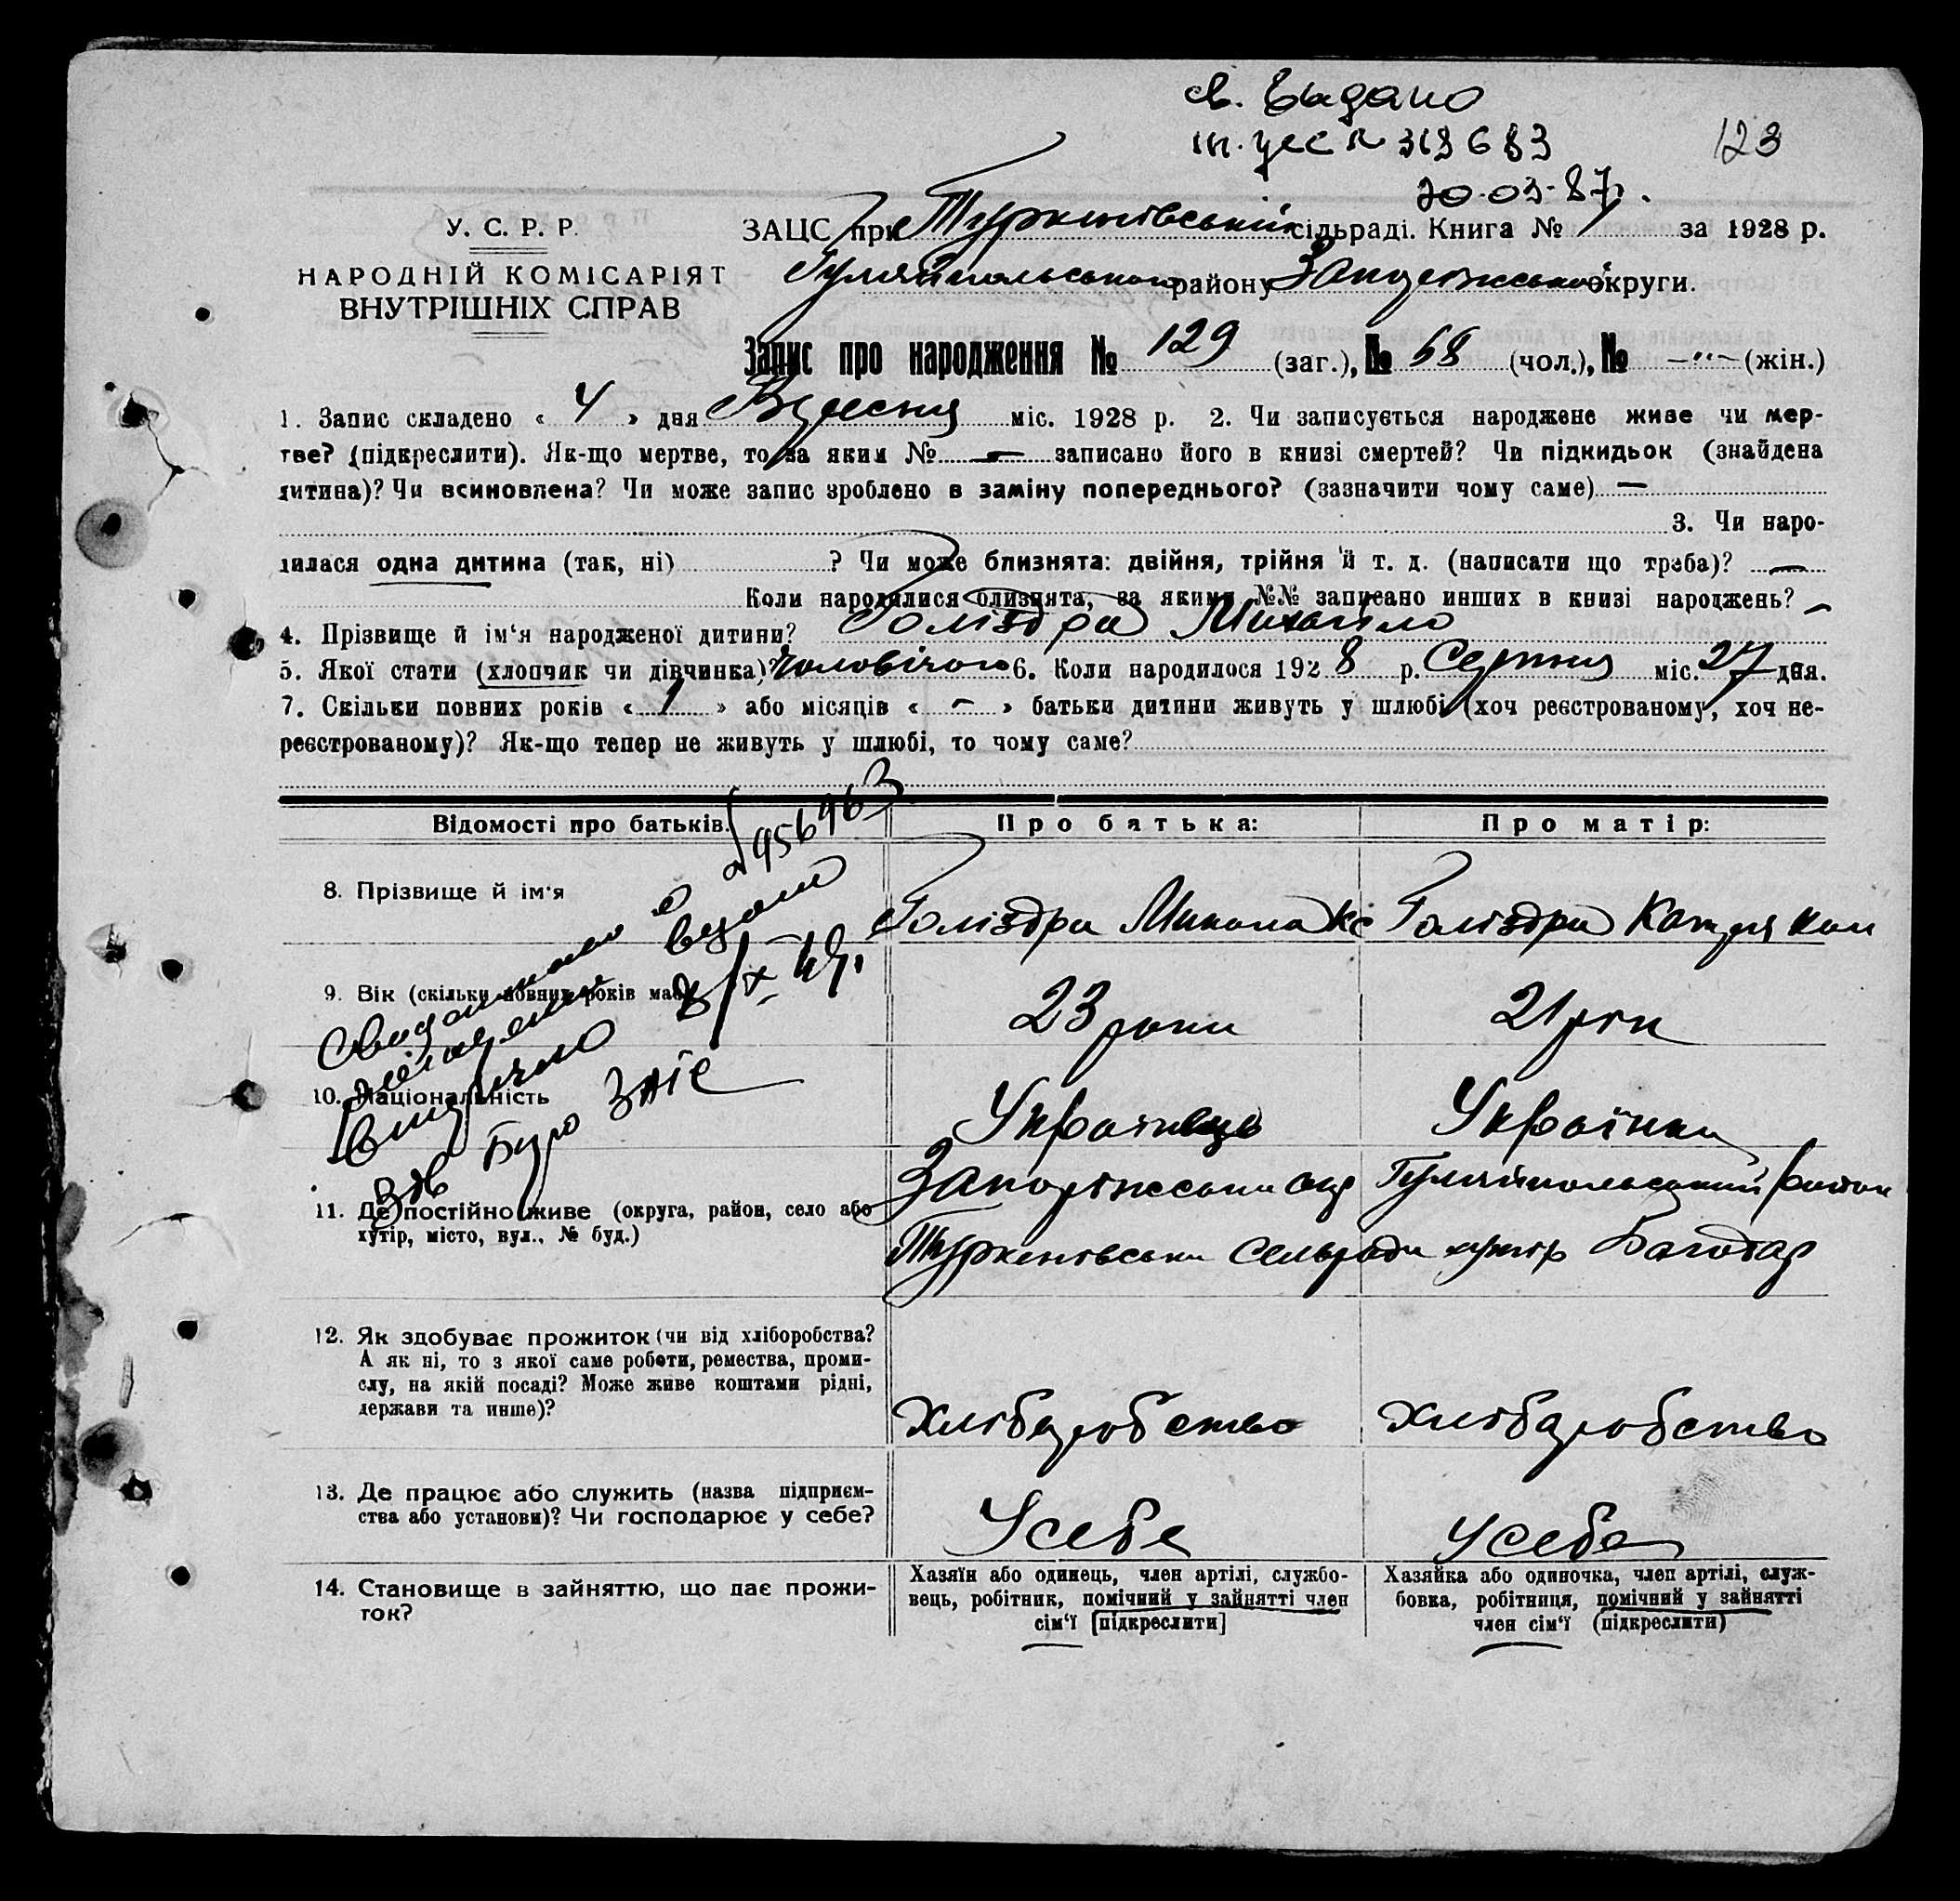 св. выдано
123
20-03-87р.
У. С. Р. Р.
НАРОДНІЙ КОМІСАРІЯТ
ВНУТРІШНІХ СПРАВ
ЗАЦС при Туркенівській сільраді. Книга № 1 за 1928 р.
Гуляйпольського району Запоріжської округи.
Запис про народження № 129 (заг.), № 68 (чол.), № —"— (жін.)
1. Запис складено « 4 » дня Вересня міс. 1928 р. 2. Чи записується народжене живе чи мер-
тве? (підкреслити). Як-що мертве, то за яким № — записано його в книзі смертей? Чи підкидьок (знайдена
дитина)? Чи всиновлена? Чи може запис зроблено в заміну попереднього? (зазначити чому саме) —
3. Чи наро-
дилася одна дитина (так, ні) ? Чи може близнята: двійня, трійня й т. д. (написати що треба)? —
Коли народилися близнята, за якими №№ записано инших в книзі народжень? —
4. Прізвище й ім'я народженої дитини? Голіздра Михайло
5. Якої стати (хлопчик чи дівчинка)? Чоловічого 6. Коли народилося 1928 р. Серпня міс. 27 дня.
7. Скільки повних років « 1 » або місяців « - » батьки дитини живуть у шлюбі (хоч реєстрованому, хоч не-
реєстрованому)? Як-що тепер не живуть у шлюбі, то чому саме?
Відомості про батьків. Про батька: Про матір:
8. Прізвище й ім'я Голіздра Микола Голіздра Катря
9. Вік (скільки повних років має) 23 роки 21 рік
10. Національність Українець Українка
11. Де постійно живе (округа, район, село або
хутір, місто, вул., № буд.)
Запоріжськи окр Гуляйпольський район
Туркенівськи Сельради хутір Багодар
12. Як здобуває прожиток (чи від хліборобства?
А як ні, то з якої саме роботи, ремества, проми-
слу, на якій посаді? Може живе коштами рідні,
держави та инше)?
Хліборобство Хліборобство
13. Де працює або служить (назва підприєм-
ства або установи)? Чи господарює у себе?
У себе У себе
14. Становище в зайняттю, що дає прожи-
ток?
Хазяїн або одинець, член артілі, службо-
вець, робітник, помічний у зайнятті член
сім'ї [підкреслити]
Хазяйка або одиночка, член артілі, служ-
бовка, робітниця, помічний у зайнятті
член сім'ї (підкреслити)